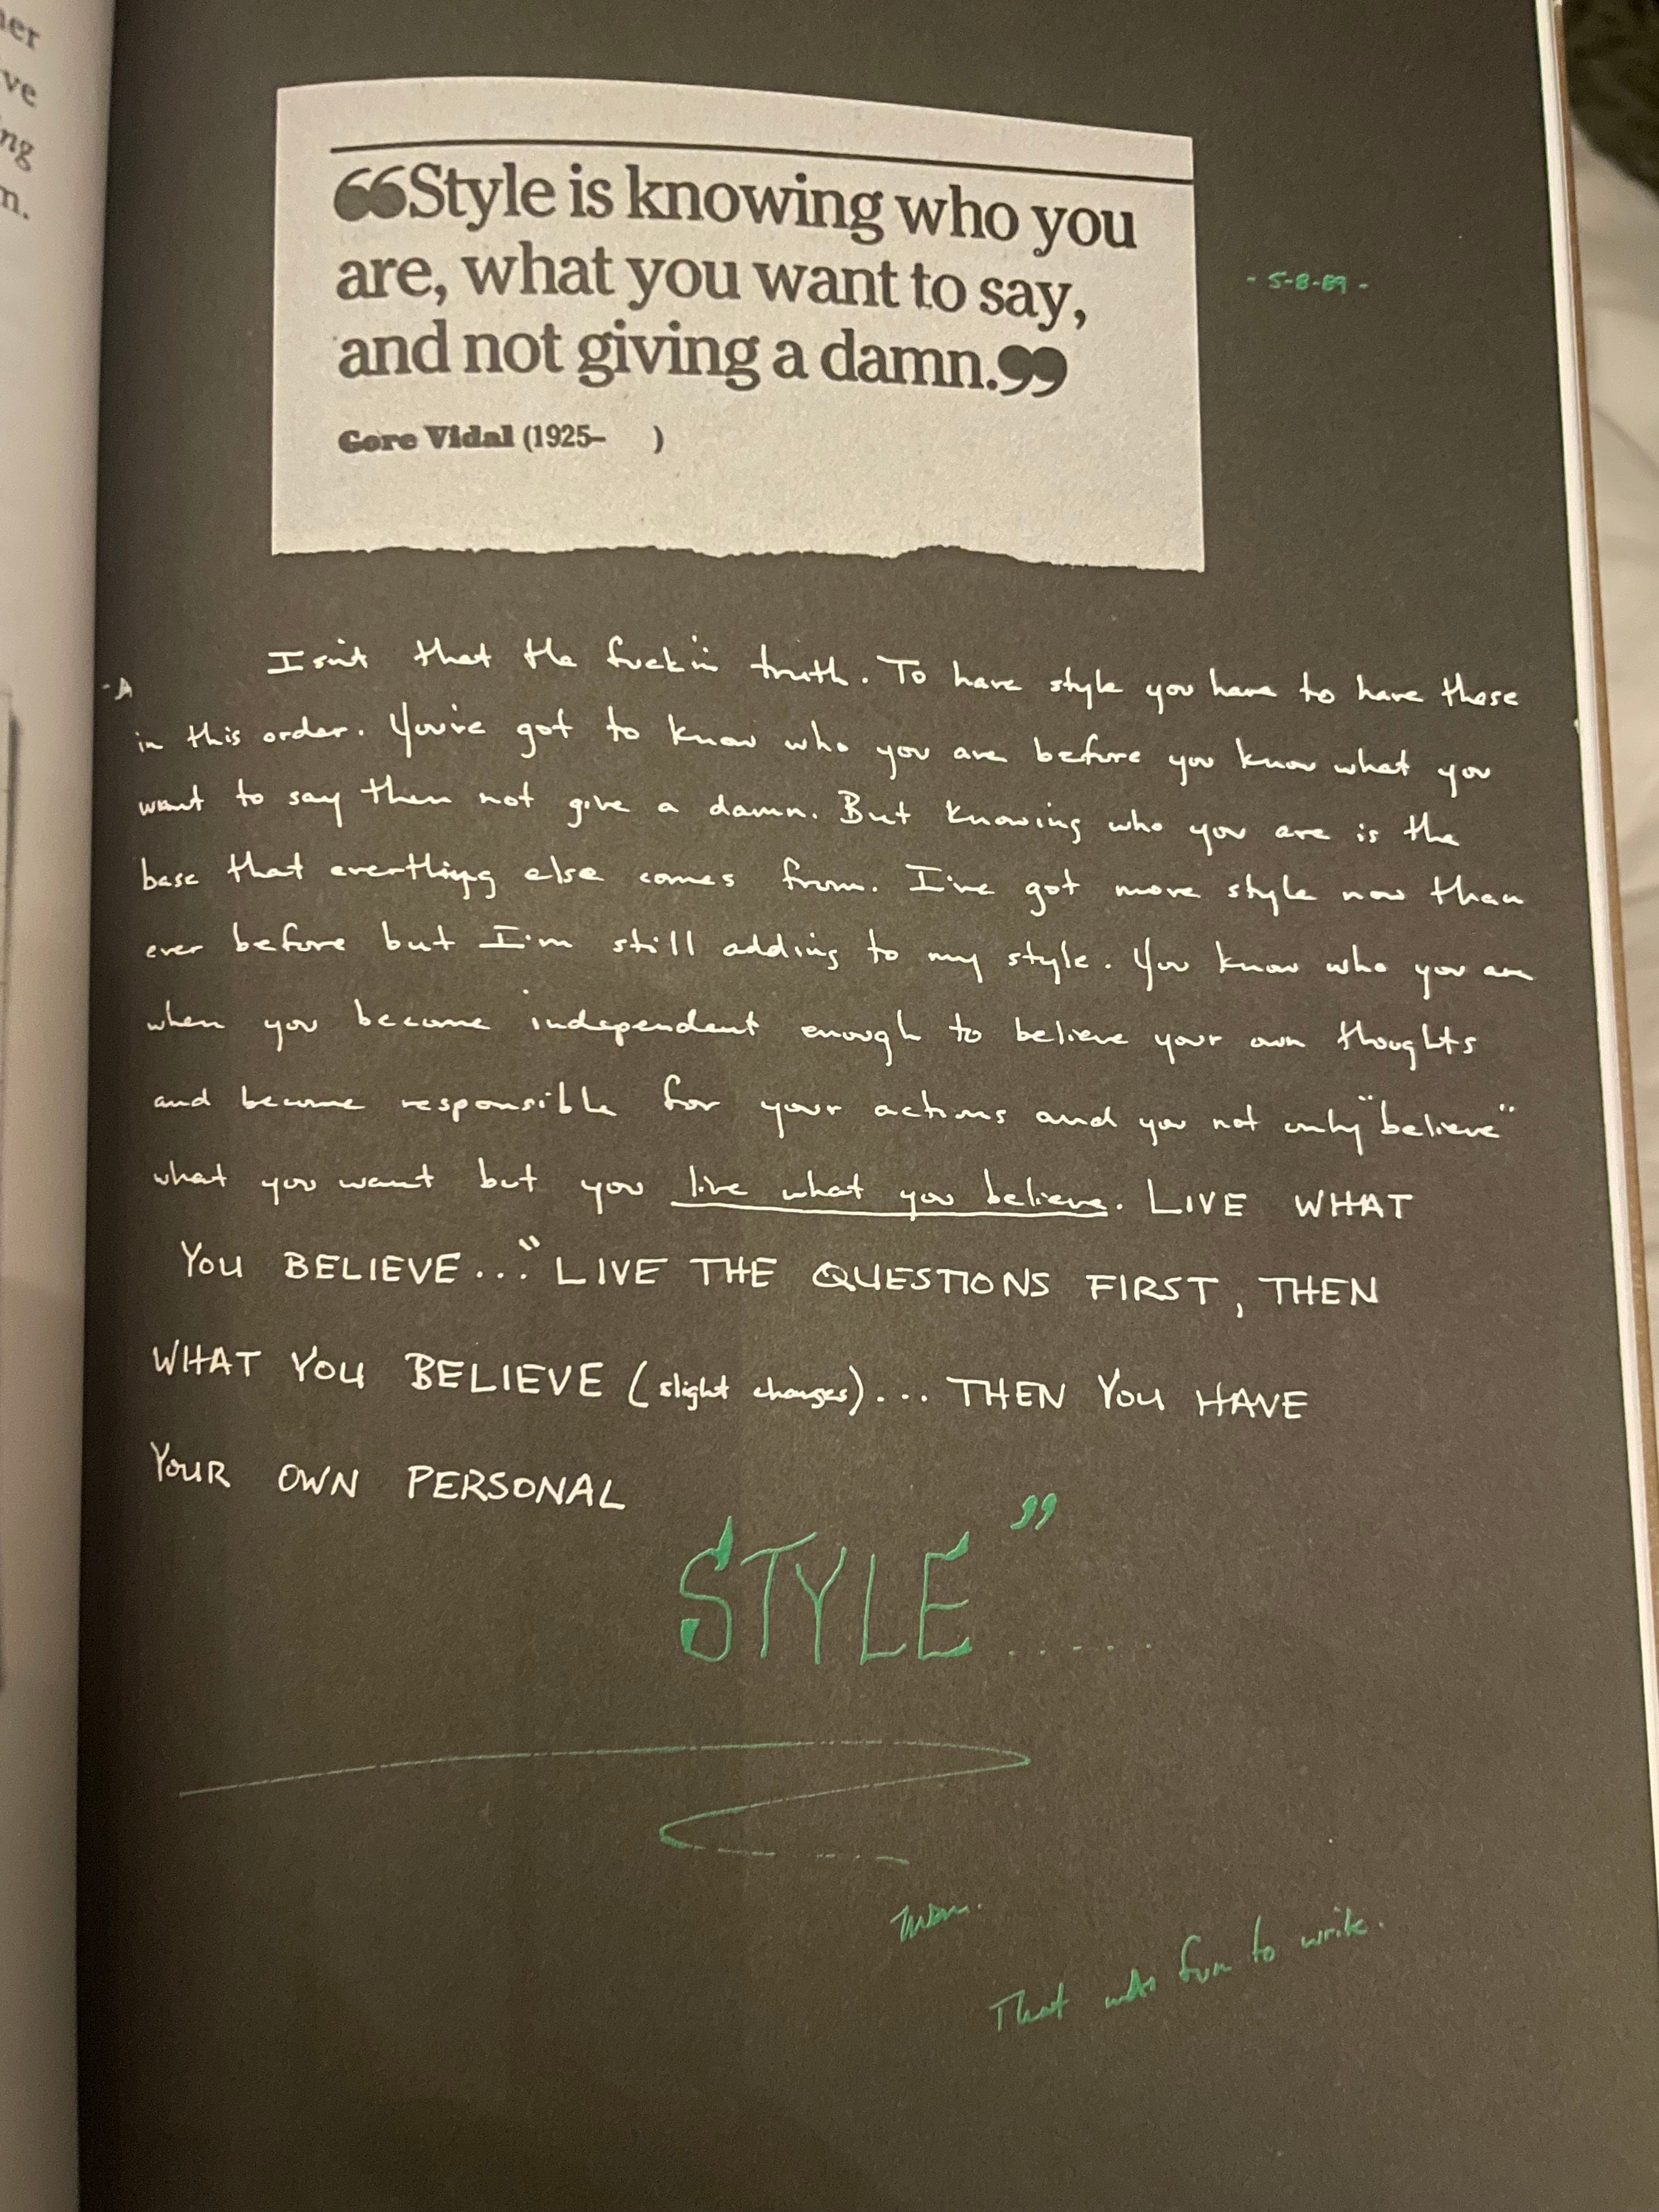 her
ve
ng
n.
“Style is knowing who you
are, what you want to say,
and not giving a damn.”
Gore Vidal (1925– )
- 5-8-89 -
Isn't that the fuckin truth. To have style you have to have these
-A
in this order. You've got to know who you are before you know what you
want to say then not give a damn. But knowing who you are is the
base that everthing else comes from. I've got more style now than
ever before but I'm still adding to my style. You know who you are
when you become independent enough to believe your own thoughts
and become responsible for your actions and you not only "believe"
what you want but you live what you believe. LIVE WHAT
YOU BELIEVE... "LIVE THE QUESTIONS FIRST, THEN
WHAT YOU BELIEVE (slight changes)... THEN YOU HAVE
YOUR OWN PERSONAL
STYLE".....
That was fun to write.